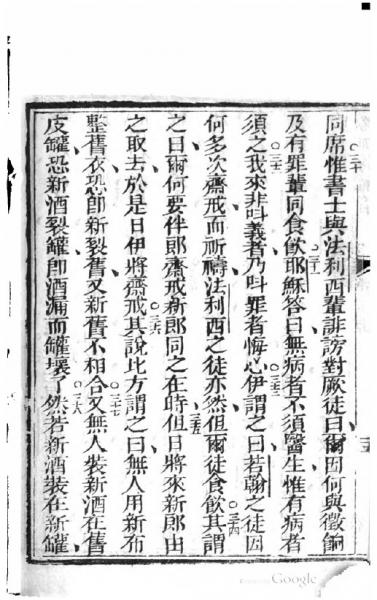 同席惟書士與法利西輩誹謗對厥徒曰爾因何與徵餉
及有罪輩同食飲耶穌答曰無病者不須醫生惟有病者
須之我來非呌義者乃呌罪者悔心伊謂之曰若翰之徒因
何多次齋戒而祈禱法利西之徒亦然但爾徒食飲其謂
之曰爾何要伴郎齋戒新郎同之在時但日將來新郎由
之取去於是日伊將齋戒其說比方謂之曰無人用新布
整舊衣恐卽新裂舊又新舊不相合又無人裝新酒在舊
皮罐恐新酒裂罐卽酒漏而罐壞了然若新酒裝在新罐
Google